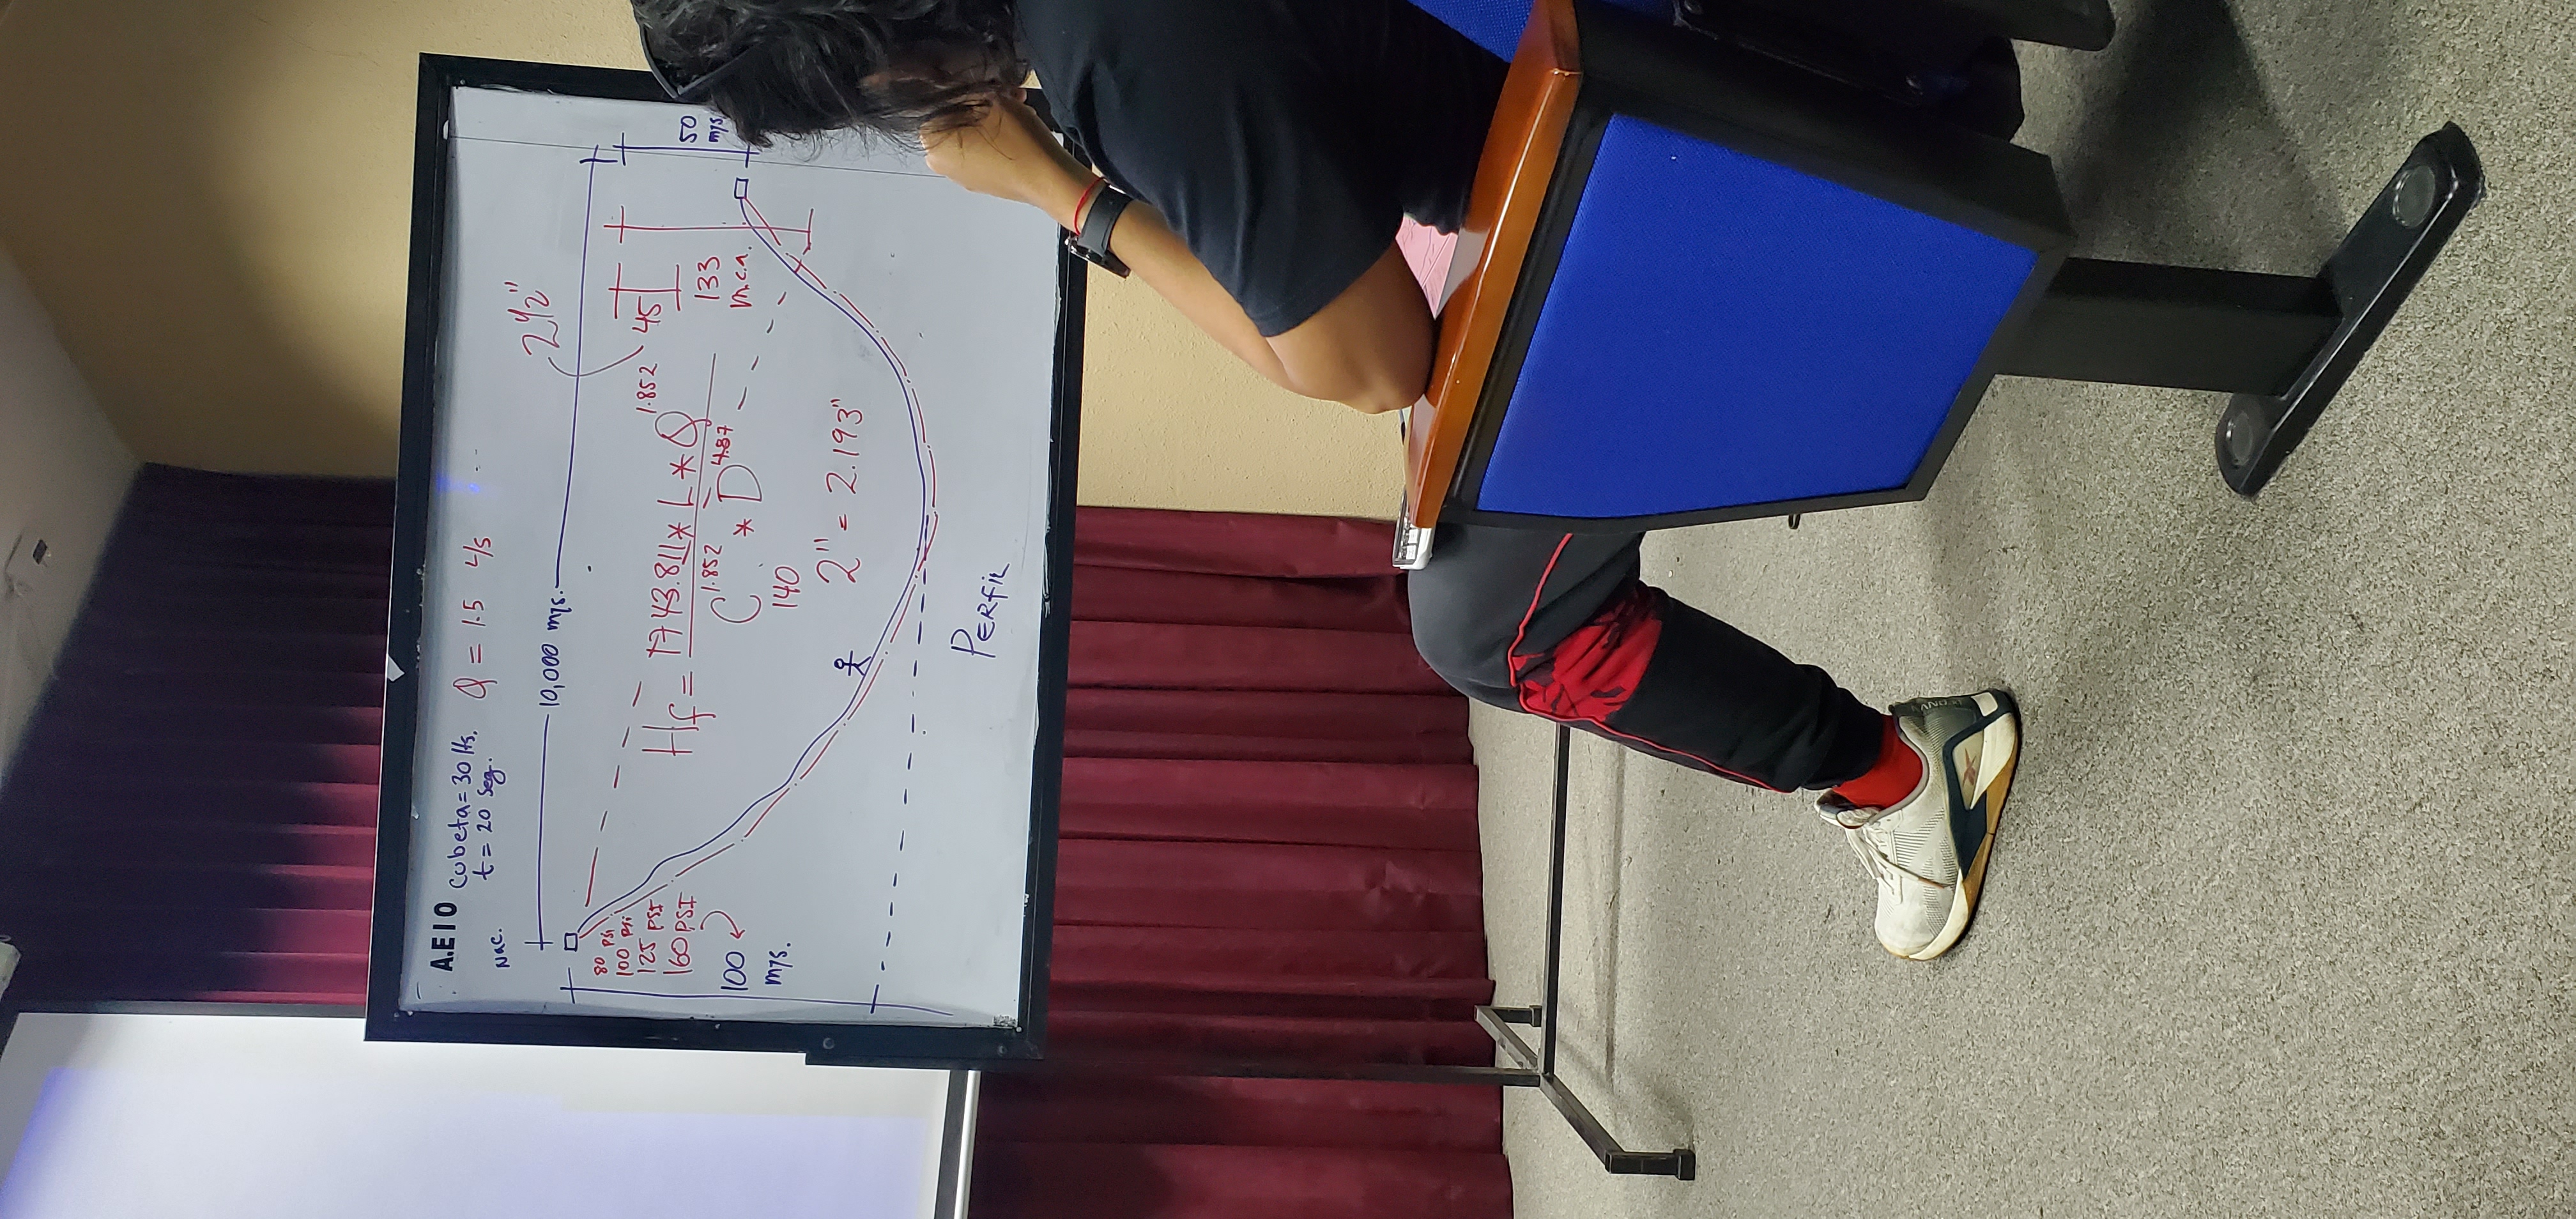 A.E I O
cubeta = 30 lts.
t = 20 seg.
Q = 1.5 L/s
Nac.
10,000 mts.
2 1/2"
80 psi
100 psi
125 PSI
160 PSI
100
mts.
Hf = 1743.811 * L * Q^1.852
C^1.852 * D^4.87
140
2" = 2.193"
45
133
m.c.a.
50
mts
PERFIL